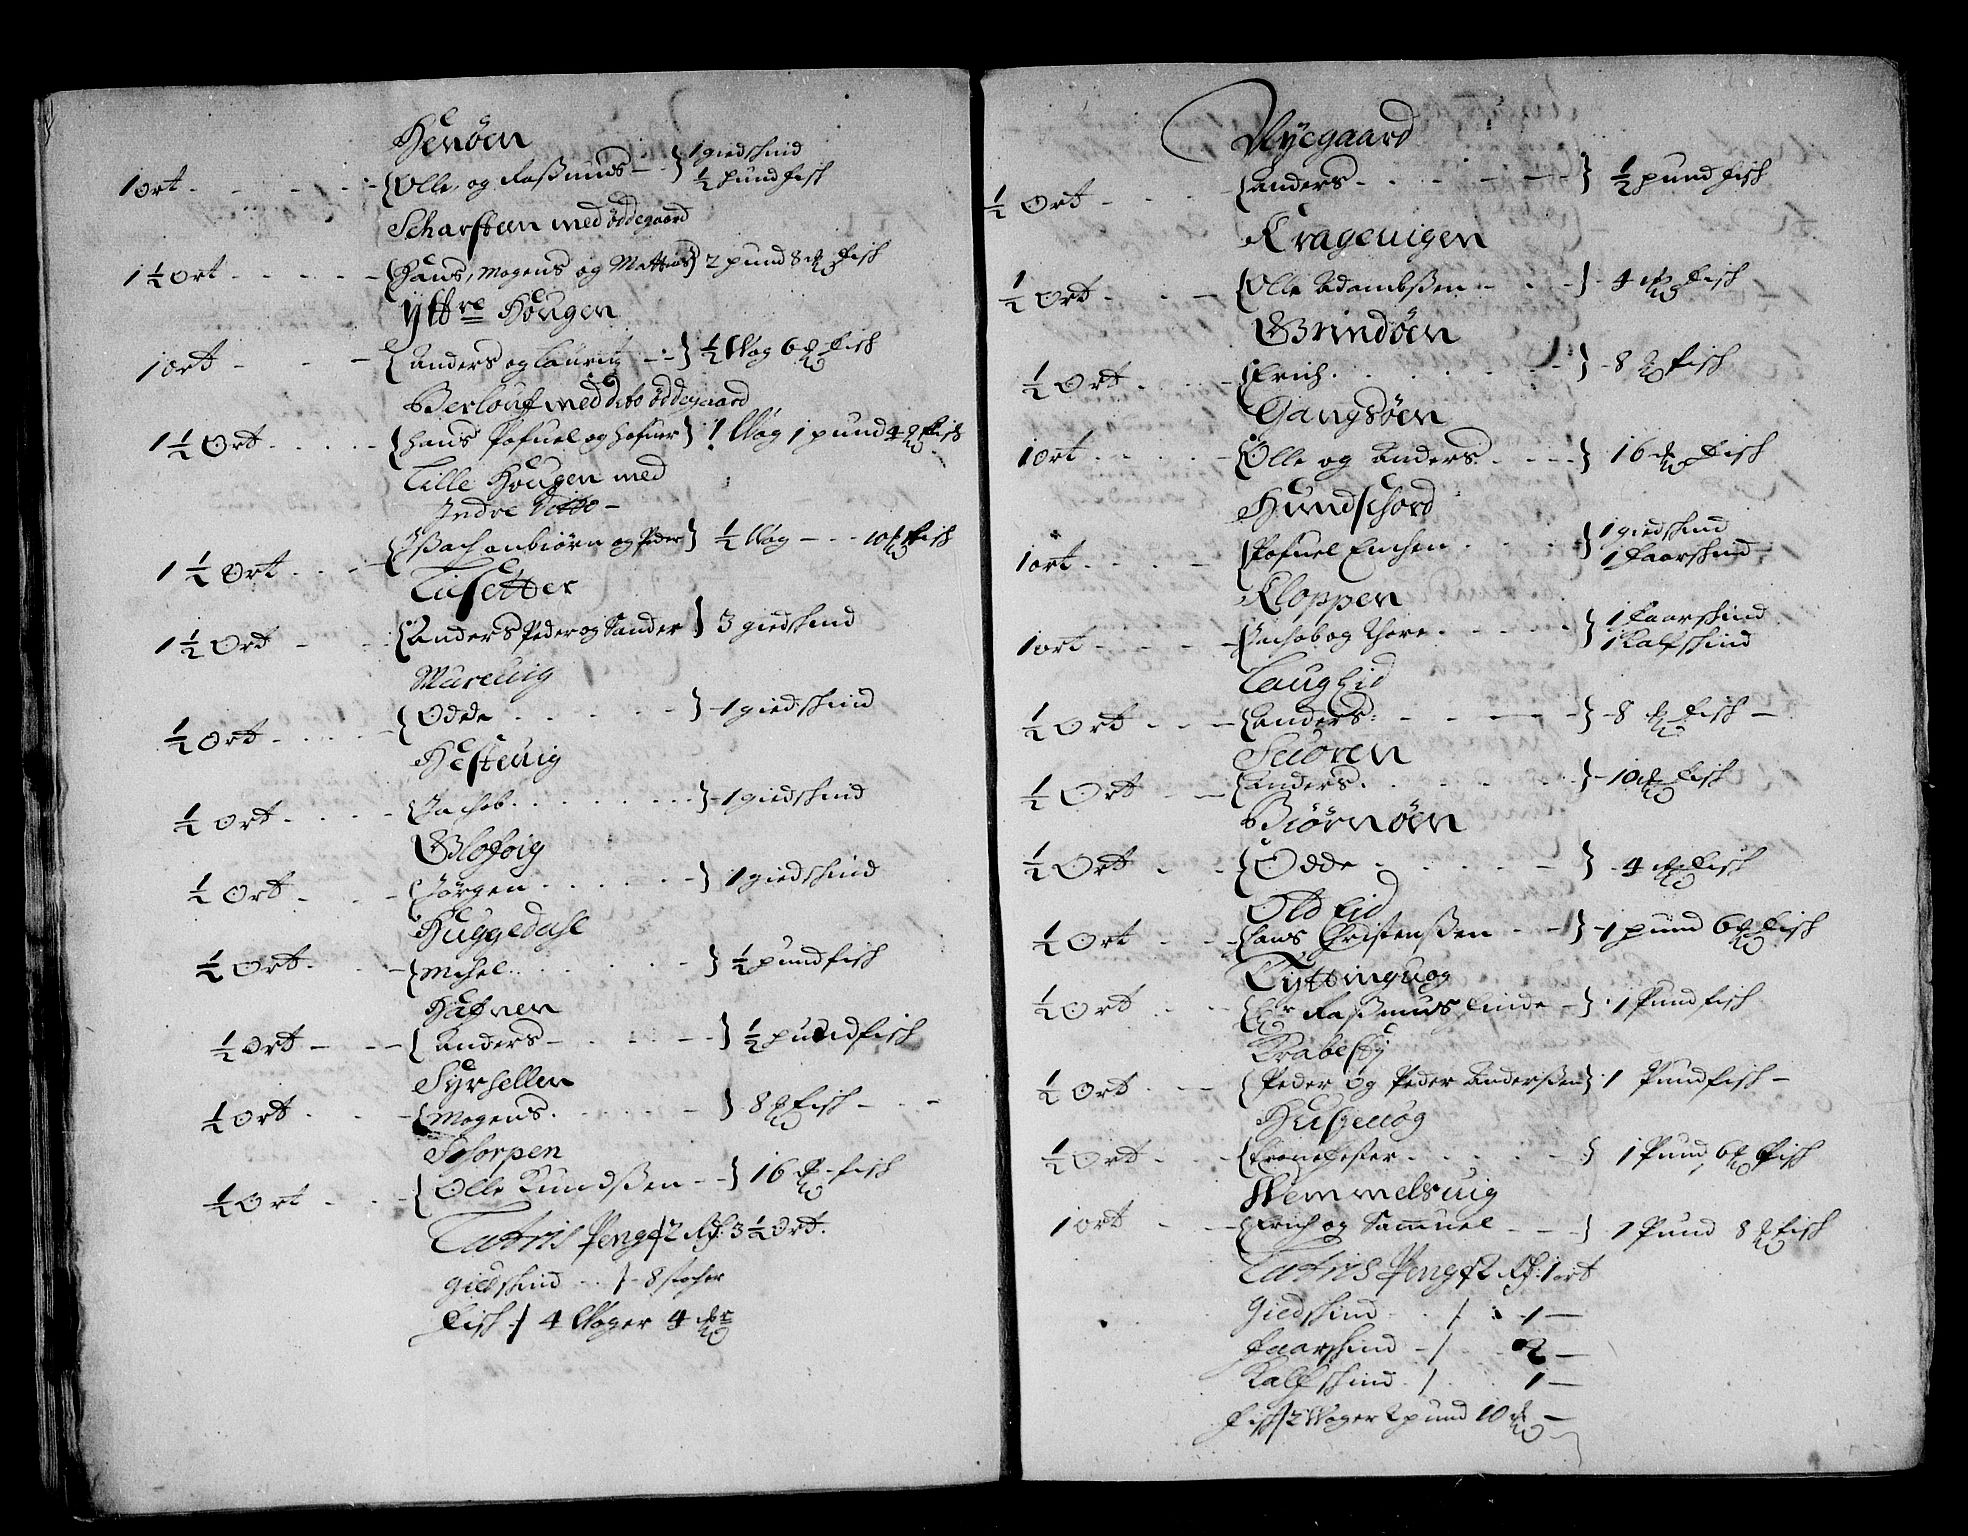 Henöen
1 ort - - - - {Olle, og Raßmus - - } 1 giedskind
½ pund fisk
Scharsteen med öddegaard
1½ ort - - - - {Hans, Mogens og Mattias} 2 pund 8 ℔ fisk
Yttre Hougen
1 ort - - - {Anders og Lauritz - - } ½ Wog 6 ℔ fisk
Berlouf med dito öddegaard
1½ Ort - - - - {Hans Pofuel og } 1 Wog 1 pund 4 ℔ fisk
Lille Hougen med
Indre Ditto -
1½ Ort - - - {Ißach Anbiörn og Peder} ½ Wog - - 10 ℔ fisk
Lisetter
1½ Ort - - - {Anders Peder og Sander} 3 giedskind
Mareuig
½ Ort - - - - {Odde - - - - } 1 giedskind
Hesteuig
½ Ort - - - - {Jachob - - - - } 1 giedskind

½ Ort - - - {Jörgen - - - - } 1 giedskind
Huggedahl
½ Ort - - - {Michel - - - - } ½ pund fisk
Hafnen
½ Ort - - - {Anders - - - - } ½ pund fisk
Syrhellen
½ Ort - - - {Mogens - - - - } 8 ℔ fisk - - -
Schorpen
½ Ort - - - {Olle Knudßen - - } 16 ℔ fisk
Lateris Penge / 2 Rd: 3½ Ort.
giedskind - - / - 8 stocher
Fisk / 4 Woger 4 ℔
Nyegaard
½ Ort - - - {Anders - - - - } ½ pund fisk
Krageuigen
½ Ort - - - {Olle Adambßen - - - } 4 ℔ fisk
Brindöen
½ Ort - - - {Erich - - - - } 8 ℔ fisk
Gangsöen
1 Ort - - - {Olle og Anders - - - } 16 ℔ fisk
Hundschord
1 ort - - - {Pofuel Erichsen - - - } 1 giedskind
1 faarskind -
Kloppen
1 ort - - - {Jachob og Thore - - - } 1 faarskind
1 Kalfskind
Laug Eid
½ Ort - - - {Anders - - - - } 8 ℔ fisk -
Seuoren
½ Ort - - - {Anders - - - - } 10 ℔ fisk
Biörnöen
½ Ort - - {Odde - - - - } 4 ℔ fisk
Old Eid
½ Ort - - - {Hans Christenßen - - } 1 pund 6 ℔ fisk
Tyttinguog
½ Ort - - {Hr Raßmus Linde - } 1 Pund fisk
Krabeßøy
½ Ort - - - {Peder og Peder Anderßen} 1 Pund fisk -
Hußeuog
½ Ort - - - { - - - - } 1 Pund 6 ℔ fisk
Wemmelsuig
1 ort - - - {Erich og Samuel - - } 1 Pund 8 ℔ fisk
Lateris Penge / 2 Rd: 1 ort
Giedskind - - / - 1 -
faarskind - / - 2 -
Kalfskind - / - 1 -
Fisk / 2 Woger 2 pund 10 ℔ -